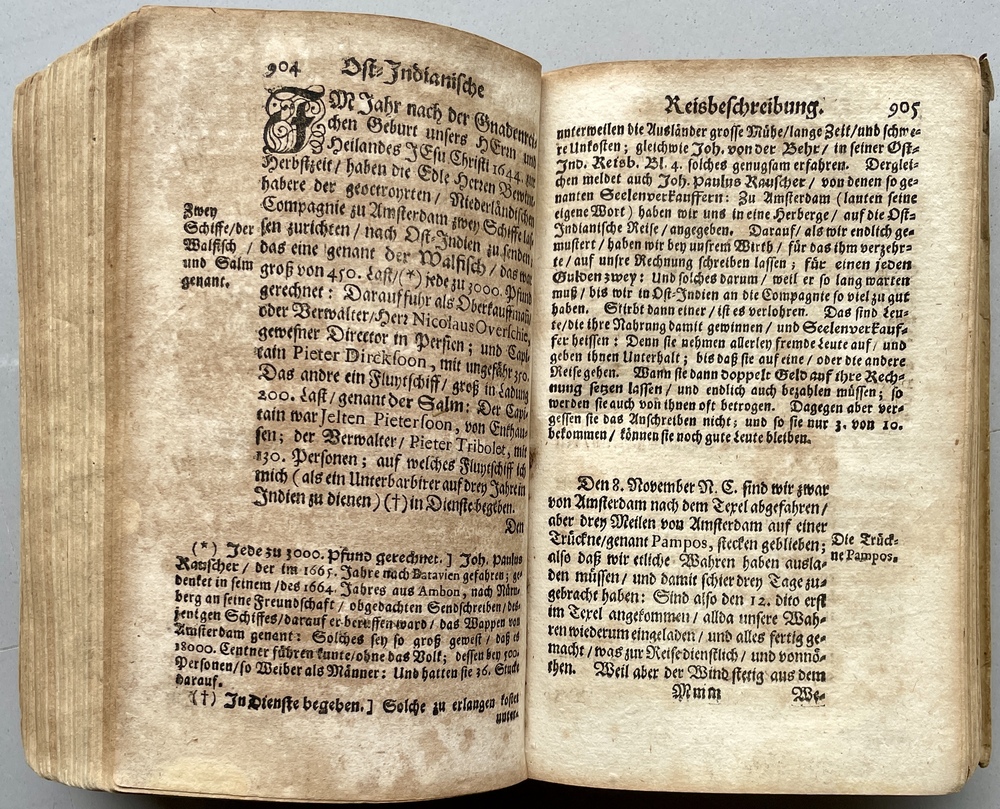 904 Ost-Indianische
IM Jahr nach der Gnadenrei-
chen Geburt unsers HErrn und
Heilandes JEsu Christi 1644. zur
Herbstzeit / haben die Edle Herren Bewind-
habere der geoctroyrten / Niederländischen
Compagnie zu Amsterdam zwey Schiffe las-
sen zurichten / nach Ost-Indien zu senden;
das eine genant der Walfisch / das war
groß von 450. Last/(*) jede zu 3000. Pfund
gerechnet: Darauf fuhr als Oberkauffmann
oder Verwalter/Herr Nicolaus Overschie,
gewesner Director in Persien; und Capi-
tain Pieter Dircksoon, mit ungefähr 350.
Das andre ein Fluytschiff/ groß in Ladung
200. Last/genant der Salm: Der Capi-
tain war Jelten Pietersoon, von Enkhau-
sen; der Verwalter/ Pieter Tribolet, mit
130. Personen; auf welches Fluytschiff ich
mich (als ein Unterbarbirer auf drey Jahre in
Indien zu dienen) (†) in Dienste begeben.
Den
Zwey
Schiffe/der
Walfisch /
und Salm
genant.
(*) Jede zu 3000. Pfund gerechnet.] Joh. Paulus
Rauscher/ der im 1665. Jahre nach Batavien gefahren; ge-
denket in seinem/des 1664. Jahres aus Ambon, nach Nürn-
berg an seine Freundschaft/ obgedachten Sendschreiben/des-
jenigen Schiffes/darauf er beruffen ward/ das Wappen von
Amsterdam genant: Solches sey so groß gewest/ daß es
18000. Centner führen kunte/ohne das Volk; dessen bey 500.
Personen/so Weiber als Männer: Und hatten sie 36. Stucke
darauf.
(†) In Dienste begeben.] Solche zu erlangen kostet
unter-
Reisbeschreibung. 905
unterweilen die Ausländer grosse Mühe/lange Zeit/und schwe-
re Unkosten; gleichwie Joh. von der Behr/ in seiner Ost-
Ind. Reisb. Bl. 4. solches genugsam erfahren. Derglei-
chen meldet auch Joh. Paulus Rauscher/ von denen so ge-
nanten Seelenverkauffern: Zu Amsterdam (lauten seine
eigene Wort) haben wir uns in eine Herberge/ auf die Ost-
Indianische Reise/angegeben. Darauf/als wir endlich ge-
mustert/ haben wir bey unsrem Wirth/ für das ihm verzehr-
te/auf unsre Rechnung schreiben lassen; für einen jeden
Gulden zwey: Und solches darum/ weil er so lang warten
muß/ bis wir in Ost-Indien an die Compagnie so viel zu gut
haben. Stirbt dann einer/ist es verlohren. Das sind Leu-
te/die ihre Nahrung damit gewinnen/ und Seelenverkauf-
fer heissen: Denn sie nehmen allerley fremde Leute auf/ und
geben ihnen Unterhalt; bis daß sie auf eine/ oder die andere
Reise gehen. Wann sie dann doppelt Geld auf ihre Rech-
nung setzen lassen/ und endlich auch bezahlen müssen; so
werden sie auch von ihnen oft betrogen. Dagegen aber ver-
gessen sie das Anschreiben nicht; und so sie nur 3. von 10.
bekommen/ können sie noch gute Leute bleiben.
Den 8. November N. C. sind wir zwar
von Amsterdam nach dem Texel abgefahren/
aber drey Meilen von Amsterdam auf einer
Trückne/genant Pampos, stecken geblieben;
also daß wir etliche Wahren haben ausla-
den müssen/ und damit schier drey Tage zu-
gebracht haben: Sind also den 12. dito erst
im Texel angekommen/ allda unsere Wah-
ren wiederum eingeladen/ und alles fertig ge-
macht/was zur Reise dienstlich/ und vonnö-
then. Weil aber der Wind stetig aus dem
Mmm We-
Die Trück-
ne Pampos.